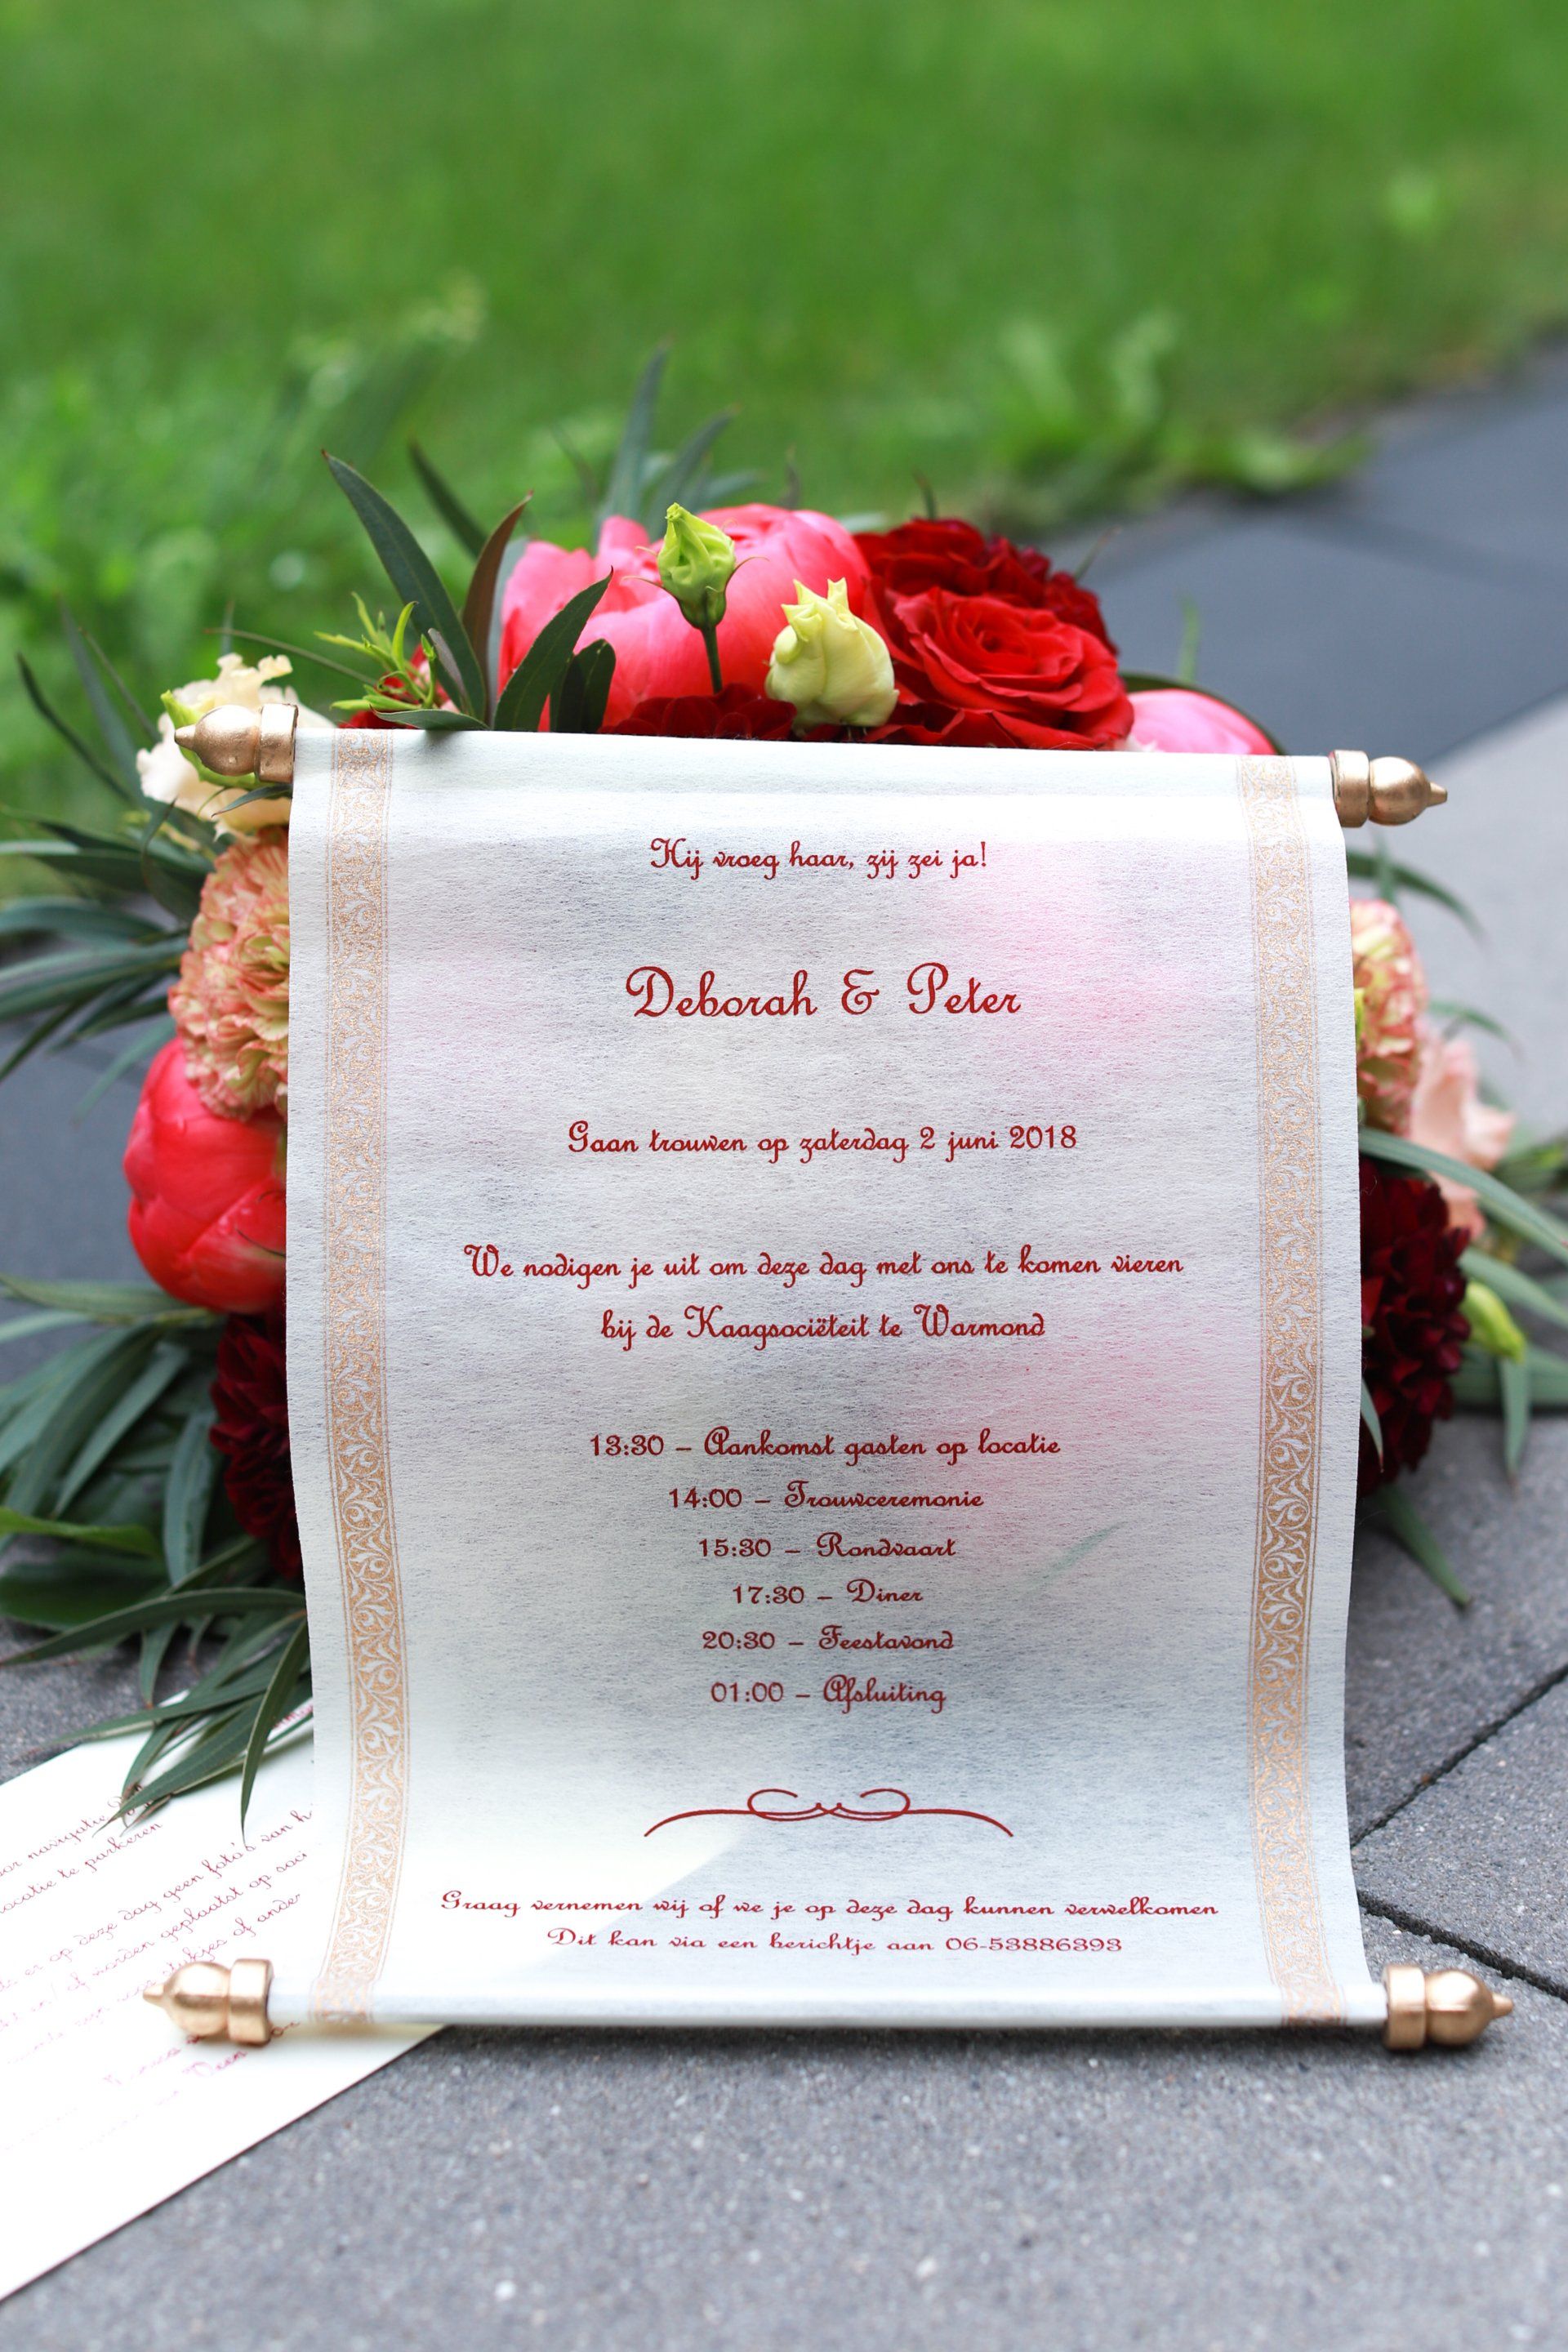 Hij vroeg haar, zij zei ja!
Deborah & Peter
Gaan trouwen op zaterdag 2 juni 2018
We nodigen je uit om deze dag met ons te komen vieren
bij de Kaagsociëteit te Warmond
13:30 – Aankomst gasten op locatie
14:00 – Trouwceremonie
15:30 – Rondvaart
17:30 – Diner
20:30 – Feestavond
01:00 – Afsluiting
Graag vernemen wij of we je op deze dag kunnen verwelkomen
Dit kan via een berichtje aan 06-53886393
navigatie
te parkeren
er op deze dag geen foto's van
/of worden geplaatst op
of